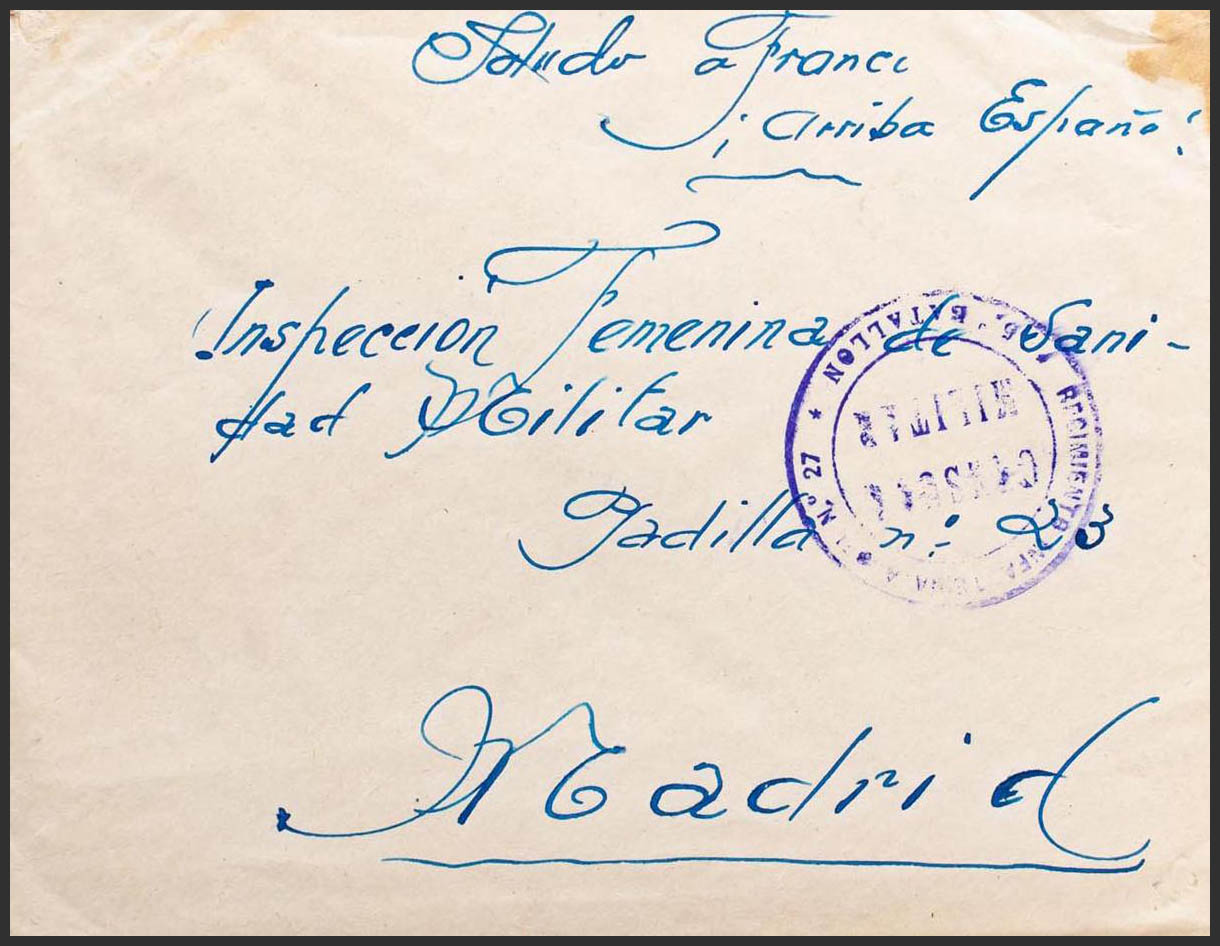 Saludo a Franco
¡Arriba España!
Inspeccion Femenina de Sani-
dad Militar
Padilla nº 23
Madrid
REGIMIENTO INFANTERIA Nº 27 * BATALLON
CENSURA
MILITAR